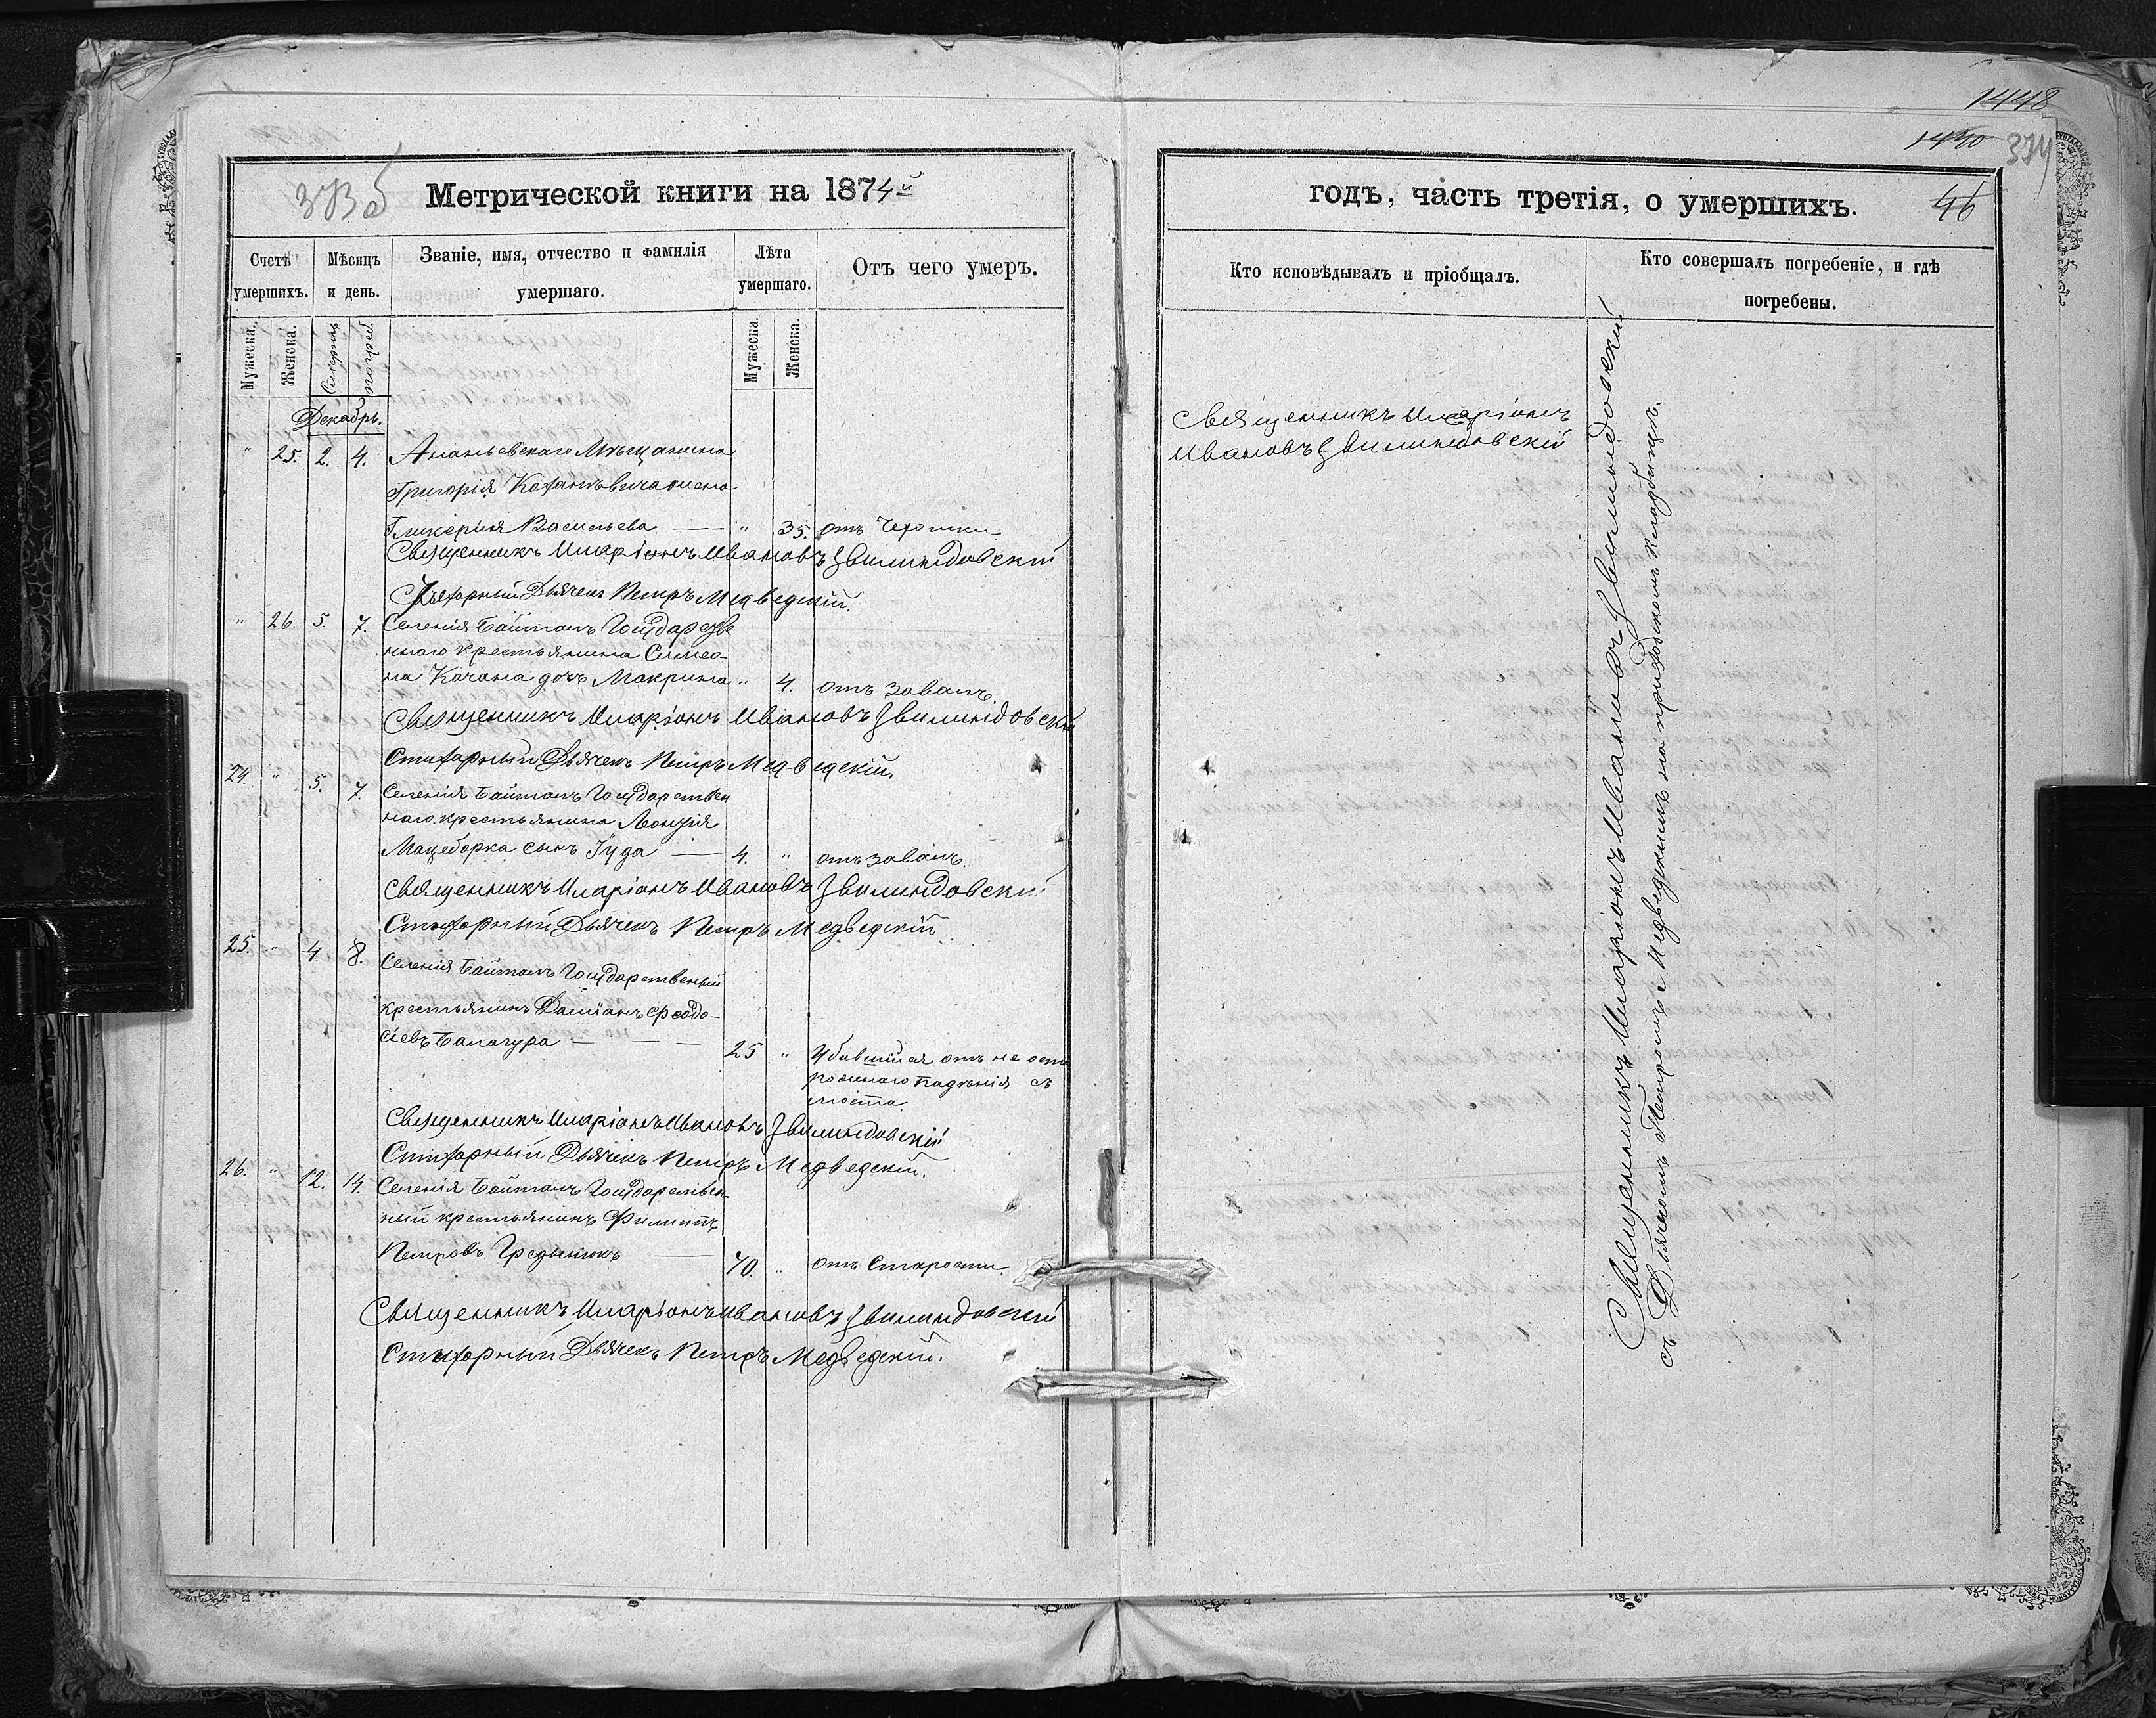 1448
1440
374
373б
Метрической книги на 1874й
годъ, часть третія, о умершихъ.
46
Счетъ умершихъ.
Мѣсяцъ и день.
Званіе, имя, отчество и фамилія умершаго.
Лѣта умершаго.
Отъ чего умеръ.
Кто исповѣдывалъ и пріобщалъ.
Кто совершалъ погребеніе, и гдѣ погребены.
Мужеска.
Женска.
Смерть
погреб.
Мужеска.
Женска.
Декабрь.
" 25. 2. 4. Ананьевскаго Мѣщанина
Григорія жена
Гликерия Васильева — " 35. отъ
Священникъ Иларіонъ Ивановъ Звилиндовскій
Стихарный Дьячекъ Петръ Медведскій.
" 26. 5. 7. Селенія Байталъ Государстве
ннаго крестьянина Симео-
на Качана дочь Макрина " 4. отъ заваль.
Священникъ Иларіонъ Ивановъ Звилиндовскій
Стихарный Дьячекъ Петръ Медведскій.
24. " 5. 7. Селенія Байталъ Государствен
наго крестьянина Леонтія
Мацеборка сынъ Іуда — 4. " отъ заваль.
Священникъ Иларіонъ Ивановъ Звилиндовскій
Стихарный Дьячекъ Петръ Медведскій
25. " 4. 8. Селенія Байталъ Государственый
крестьянинъ Даміанъ Феодо-
сіевъ Балагура — — — 25 " Убившися отъ не осто
рожнаго падѣнія съ
моста.
Священникъ Иларіонъ Ивановъ Звилиндовскій
Стихарный Дьячекъ Петръ Медведскій.
26. " 12. 14. Селенія Байталъ Государствен-
ный крестьянинъ Филиппъ
Петровъ — 70. " отъ Старости.
Священникъ Иларіонъ Ивановъ Звилиндовскій
Стихарный Дьячекъ Петръ Медведскій.
Священникъ Иларіонъ
Ивановъ Звилиндовскій
Священникъ Иларіонъ Ивановъ Звилиндовскій
съ Дьячкомъ Петромъ Медведскимъ на приходскомъ кладбищѣ.